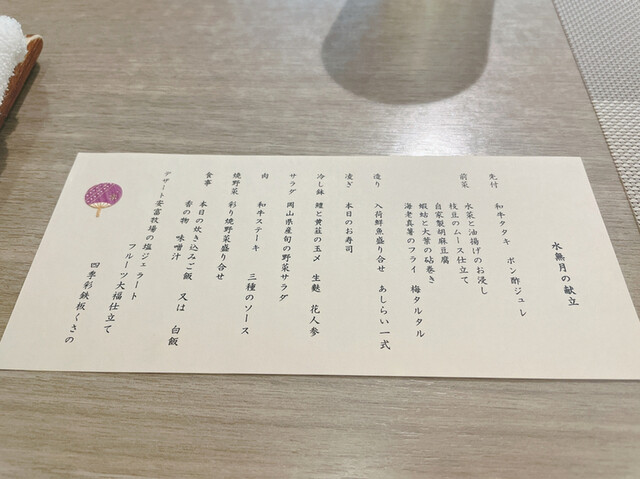 水無月の献立
先付　和牛タタキ　ポン酢ジュレ
前菜　水菜と油揚げのお浸し
枝豆のムース仕立て
自家製胡麻豆腐
蝦蛄と大葉の砧巻き
海老真薯のフライ　梅タルタル
造り　入荷鮮魚盛り合せ　あしらい一式
凌ぎ　本日のお寿司
冷し鉢　鱧と黄韮の玉〆　生麩　花人参
サラダ　岡山県産旬の野菜サラダ
肉　和牛ステーキ　三種のソース
焼野菜　彩り焼野菜盛り合せ
食事　本日の炊き込みご飯　又は　白飯
香の物　味噌汁
デザート　安富牧場の塩ジェラート
フルーツ大福仕立て
四季彩鉄板くさの